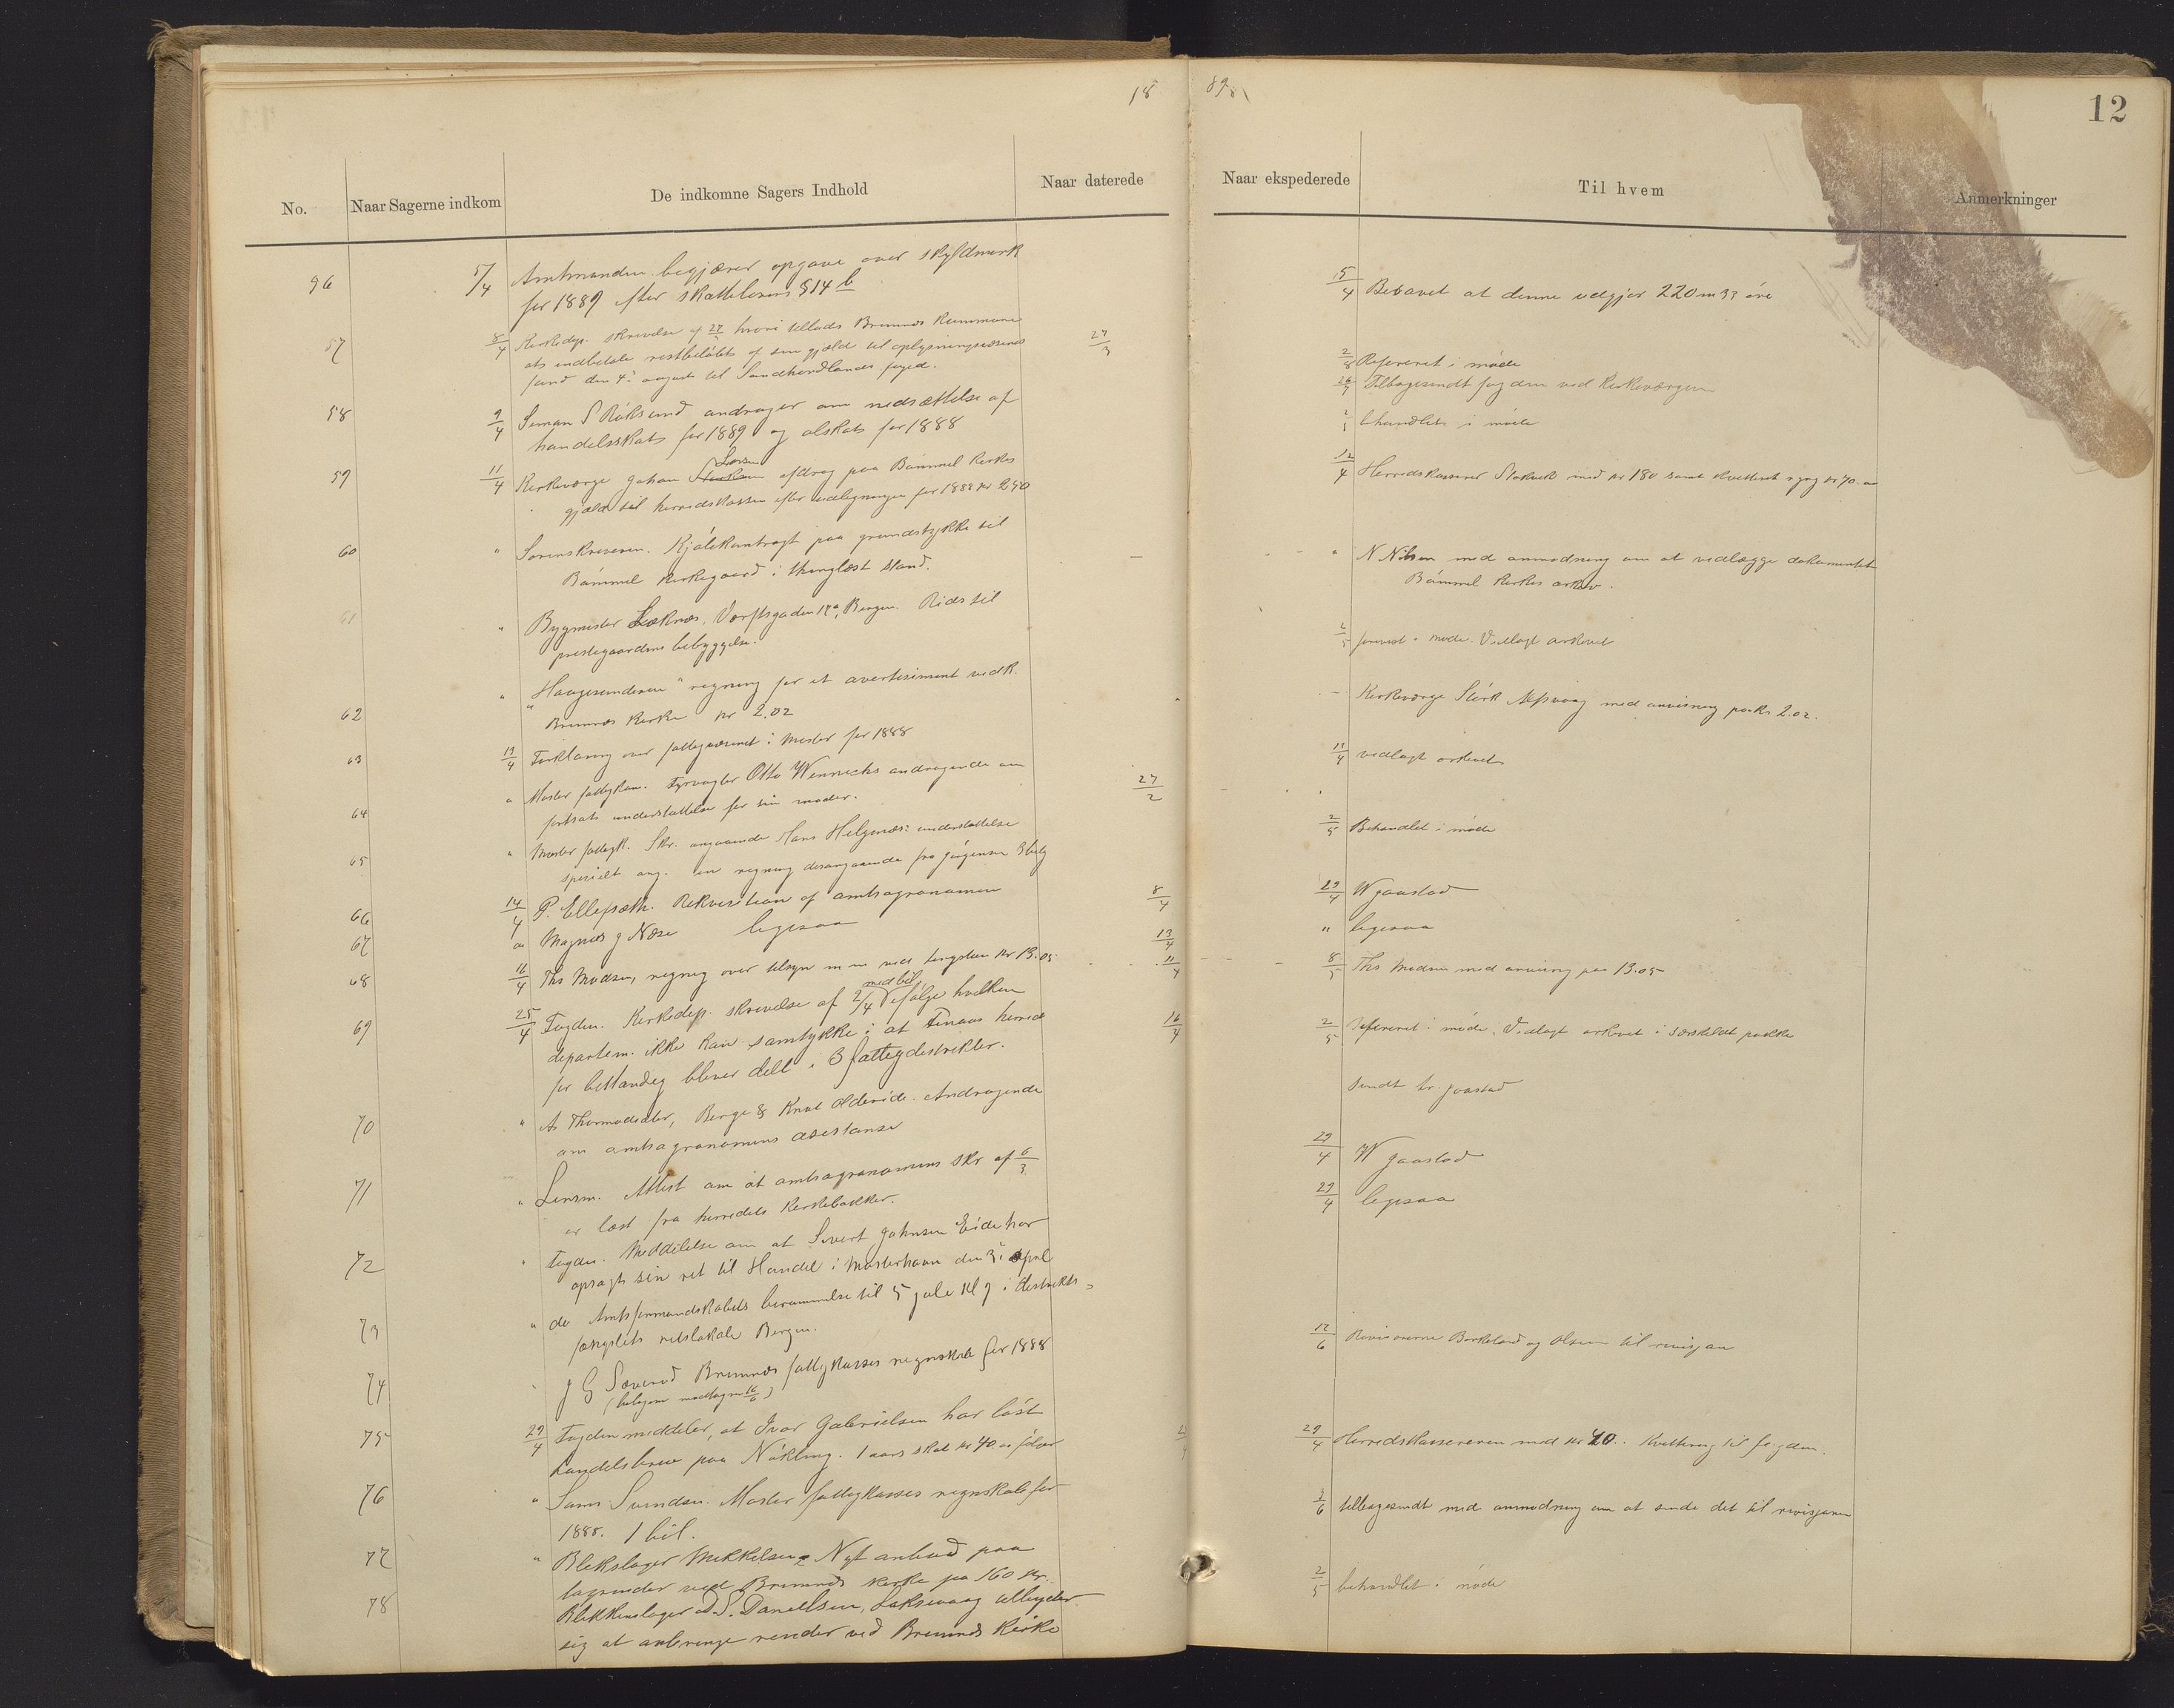 18
89
12
No.
Naar Sagerne indkom
De indkomne Sagers Indhold
Naar daterede
Naar ekspederede
Til hvem
Anmerkninger
96 5/4 Amtmanden begjærer opgave over skyldmark
for 1889 efter skattelovens §14 b
5/4 Besvaret at denne udgjør 220 m 33 øre
57 8/4 Kirkedep. skrivelse af 27/3 hvori tillades Bremnes kommune
at indbetale restbeløbet af sin gjæld til oplysningsvæsenets
fond den 4de august til Søndhordlands foged.
27/3
2/8 Refereret i møde
Tilbagesendt fogden ved kirkeværgen
58 9/4 Simon S Røksund andrager om nedsættelse af
handelsskat for 1889 og alskat for 1888
behandlet i møde
59 11/4 Kirkeværge Johan Larsen afdrag paa Bømmel kirkes
gjæld til herredskassen efter udligningen for 1888 kr 240
12/4 Herredskasserer Stokvik med kr 180 samt kvitteret kr 70
60 " Sorenskriveren. Kjøbekontragt paa grundstykke til
Bømmel kirkegaard i thinglæst stand.
" N Nilsen med anmodning om at vedlægge dokumentet
Bømmel kirkes arkiv.
61 " Bygmester Løknes, Verftsgaden 12a, Bergen. Rids til
prestegaardens bebyggelse.
2/5 i møde. Vedlagt arkivet
62 " "Haugesunderen" regning for et avertissiment vedk.
Bremnes kirke kr 2.02
Kirkeværge Størk Mæsvaag med anvisning paa kr 2.02.
63 13/4 Forklaring over fattigvæsenet i Moster for 1888
vedlagt arkivet
64 " Moster fattigkom. Fyrvogter Otto Wennechs andragende om
fortsat understøttelse for sin moder.
27/2
2/5 Behandlet i møde
65 " Moster fattigk. Skr. angaaende Hans Helgenæs: understøttelse
specielt ang. en regning desangaaende fra Jørgensen 3 bilg
66 14/4 P. Ellefsæth. Rekvisition af amtsagronomen
8/4
29/4 W Gaastad
67 " Magnus J Næse ligesaa
13/4
" ligesaa
68 16/4 Ths Madsen, regning over tilsyn m m ved tingstuen kr 13.05
11/4
8/5 Ths Madsen med anvisning paa 13.05
69 25/4 Fogden. Kirkedep. skrivelse af 2/4 med bil. ifølge hvilken
departem. ikke kan samtykke i at Finaas herred
for bestandig bliver delt i 3 fattigdistrikter.
16/4
2/5 refereret i møde. Vedlagt arkivet i særskildt pakke
70 " A Thormodsæter, Berge & Knut Oldervik. Andragende
om amtsagronomens assistanse
sendt hr. Gaastad
71 " Lensm. Attest om at amtsagronomens skr af 6/3
er læst fra herredets kirkebakker.
29/4 W Gaastad
29/4 ligesaa
72 " Fogden. Meddelelse om at Sivert Johnsen Eide har
opsagt sin ret til Handel i Mosterhavn den 3die april
73 " do Amtsformandskabets berammelse til 5 juli kl 9 i distrikts-
fængslets retslokale Bergen.
74 J G Sæverud Bremnes fattigkasses regnskab for 1888
(bilagene modtagne 16/6)
12/6 Revisorerne Barkeland og Olsen til revisjon
75 29/4 Fogden meddeler, at Ivar Gabrielsen har løst
handelsbrev paa Nøkling. 1 aars skat kr 40 følger
29/4 Herredskassereren med kr 40. Kvittering til fogden.
76 " Søren Svendsen. Moster fattigkasses regnskab for
1888. 1 bil.
3/6 tilbagesendt med anmodning om at sende det til revisjonen
77 " Blekslager Mikkelsen Nyt anbud paa
tagrender ved Bremnes kirke paa 160 kr.
2/5 behandlet i møde
78 Blikkenslager A S. Daniellsen, Laksevaag tilbyder
sig at anbringe render ved Bremnes kirke